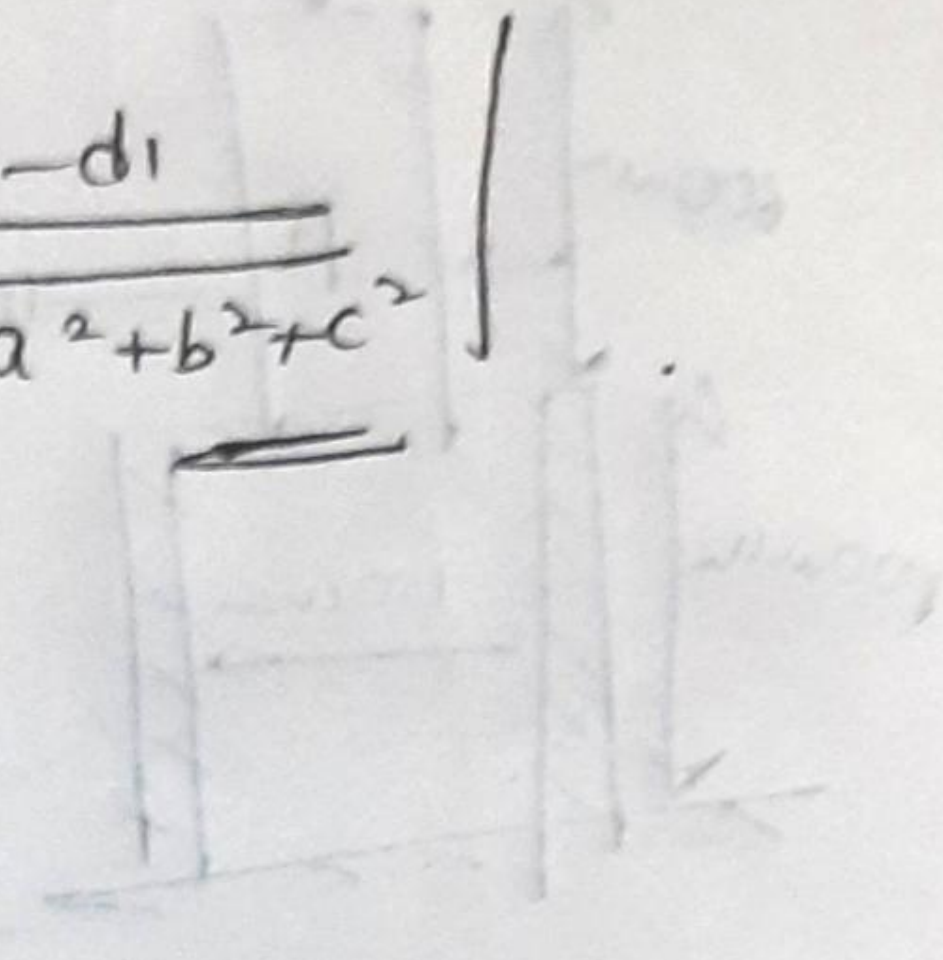 -d1
a²+b²+c²